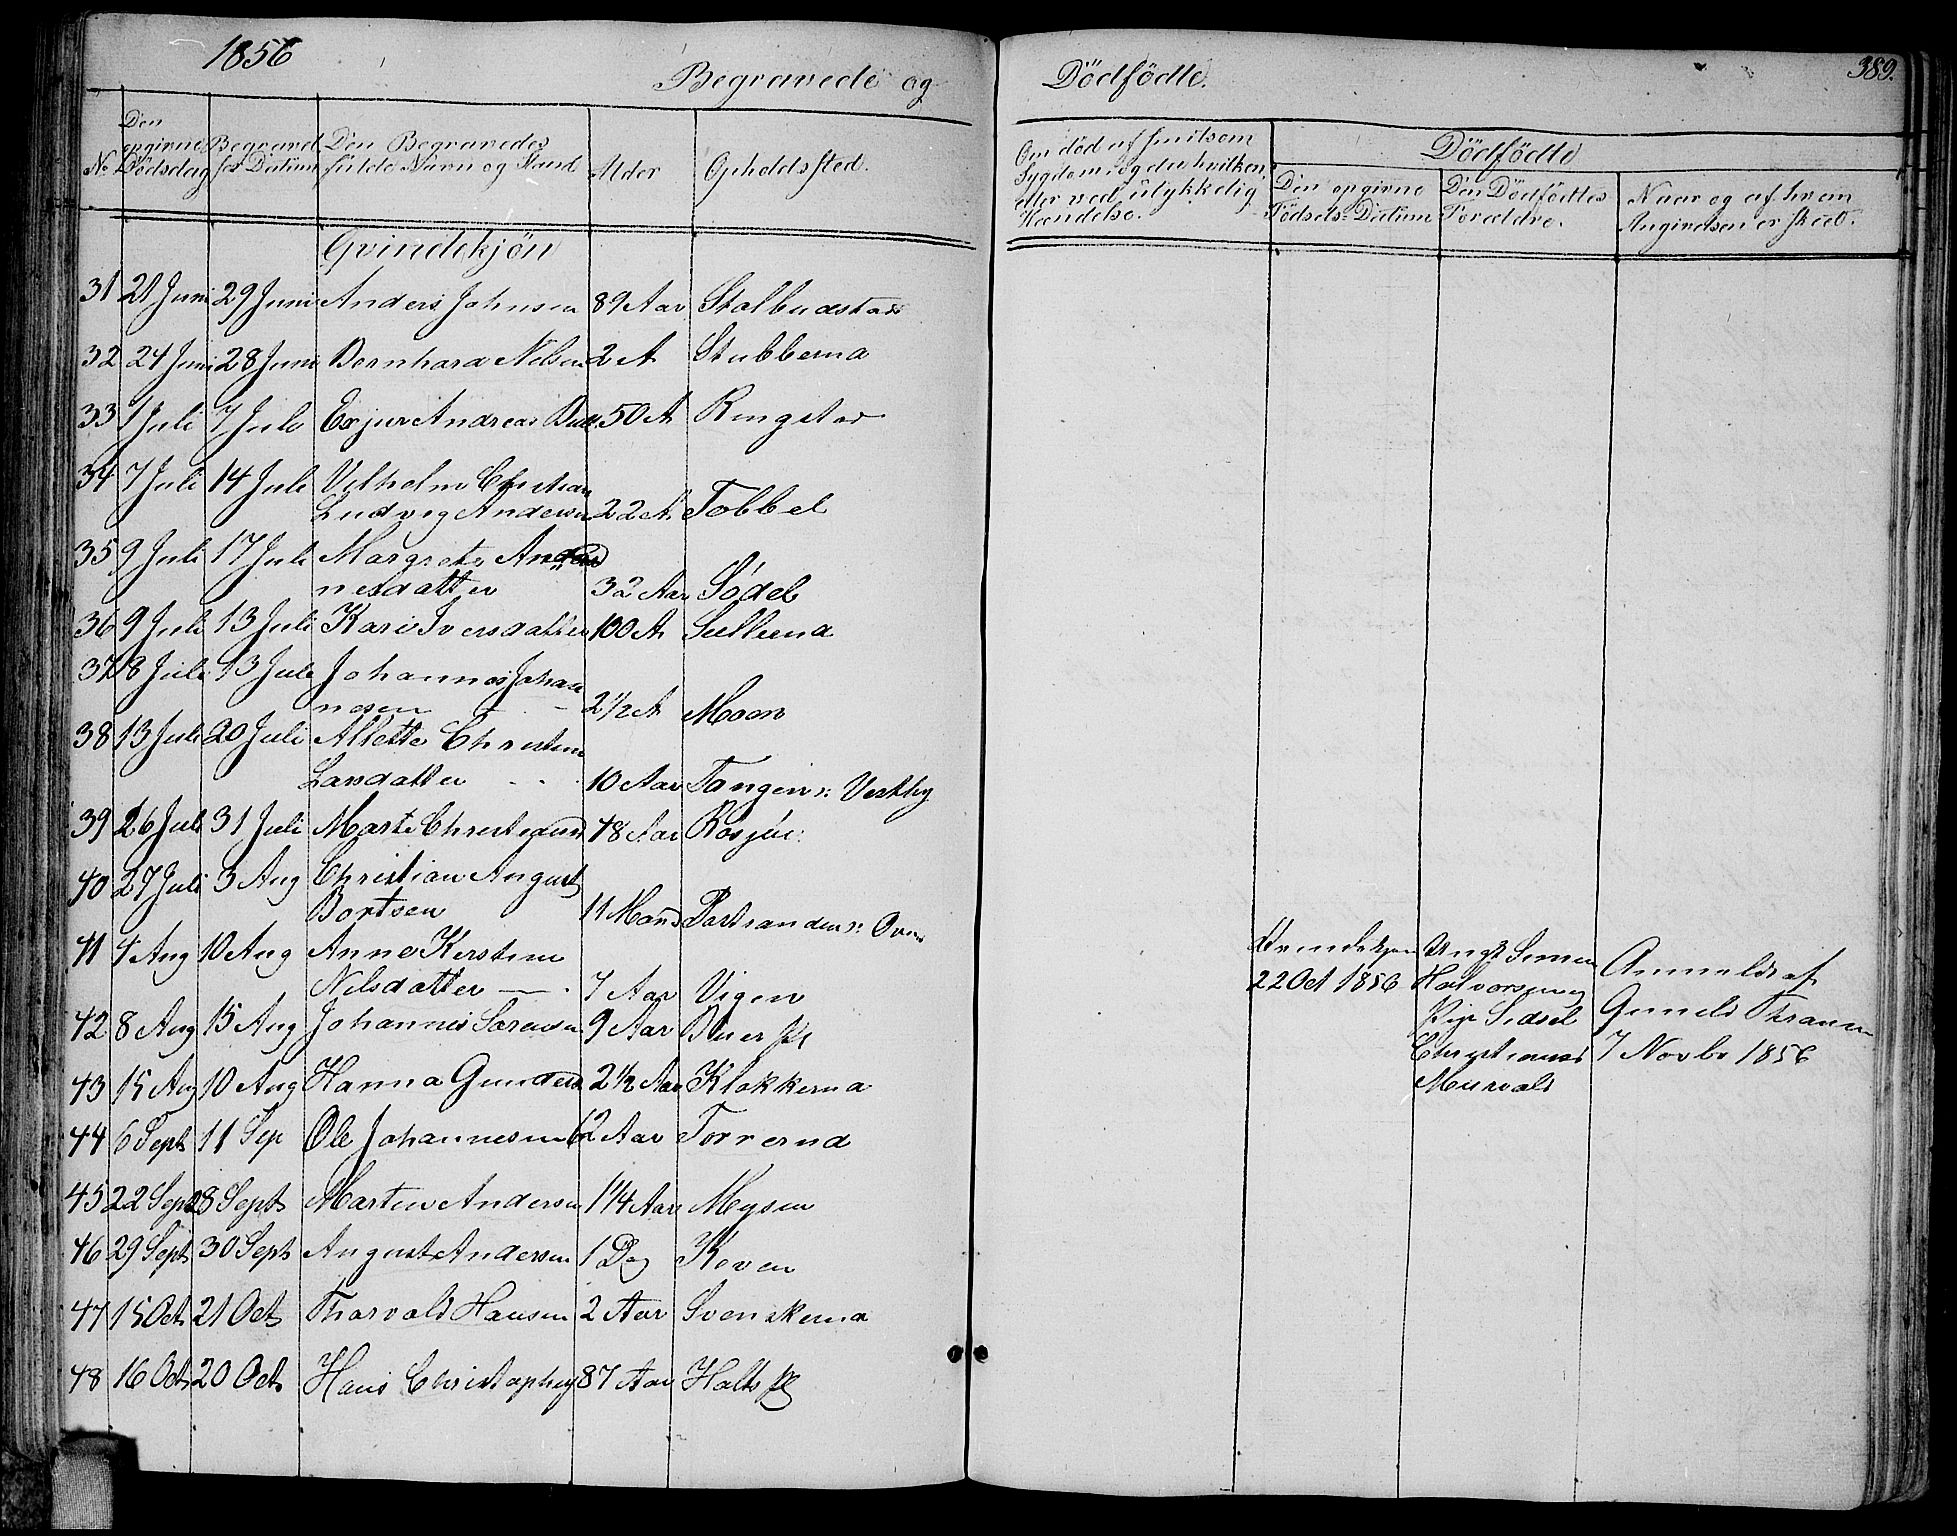 1856
Begravede og
Dödfödte.
389.
No
Den opgivne Dödsdag
Begravelses Datum
Den Begravedes fulde Navn og Stand
Alder
Opholdssted.
Om död af smitsom Sygdom, og da hvilken, eller ved ulykkelig Hændelse.
Dödfödte
Den opgivne Födsels-Datum
Den Dödfödtes Forældre.
Naar og af hvem Angivelsen er skeet.
Qvindekjön
31 21 Juni 29 Juni Anders Johnsen 89 Aar Stolbudstad
32 24 Juni 28 Juni Bernhard Nilsen 2 A Stubberud
33 1 Juli 7 Juli Andreas 50 A Ringstad
34 7 Juli 14 Juli Vilhelm Christian
Ludvig Andersen 22 A Tobbel
35 9 Juli 17 Juli Margrete
nesdatter 32 Aar Södel
36 9 Juli 13 Juli Kari Iversdatter 100 A Sullerud
37 8 Juli 13 Juli Johannes Johan
nesen 2 1/2 A Moen
38 13 Juli 20 Juli Allette Christine
Larsdatter 10 Aar Tangen n: Vestby
39 26 Juli 31 Juli Marte 48 Aar Rosjöe
40 27 Juli 3 Aug Christian August
Bortsen 11 Maand
41 4 Aug 10 Aug Anne Kerstine
Nilsdatter 7 Aar Vigen
42 8 Aug 15 Aug Johannes Sörensen 9 Aar Buer Pl
43 15 Aug 10 Aug Hanna 2 1/2 Aar Klokkerud
44 6 Sept 11 Sep Ole Johannesen 62 Aar Torrerud
45 22 Sept 28 Sept Martin Andersen 1 1/4 Aar Mysen
46 29 Sept 30 Sept August Andersen 1 Dag Koven
47 15 Oct 21 Oct Thorvald Hansen 2 Aar Svenskerud
48 16 Oct 20 Oct Hans Christophers 87 Aar Holts Pl
Kvindekjøn
22 Oct 1856
Ungk Simen
Halvorsen og
Pige Sidsel
Christiansd
Murvold
Anmeldt af
Gunild Thranem
7 Novbr 1856